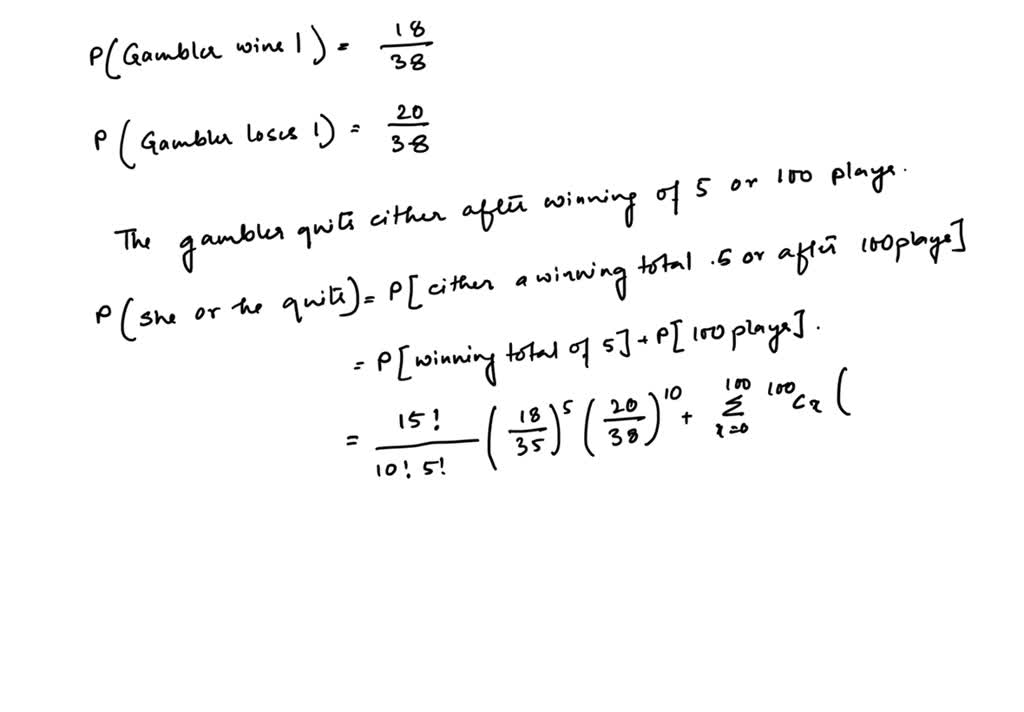 P(Gambler wins 1) = 18/38
P(Gambler loses 1) = 20/38
The gambler quits either after winning of 5 or 100 plays.
P(she or he quits) = P[either a winning total .5 or after 100 plays]
= P[winning total of 5] + P[100 plays].
= 15!/(10! 5!) (18/35)^5 (20/38)^10 + Σ_{x=0}^{100} ^{100}C_x (